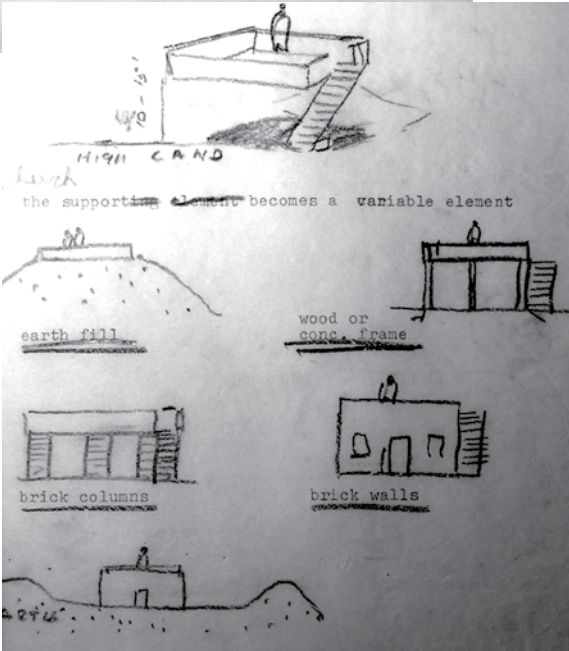 10 - 15'
HIGH LAND
the supporting element becomes a variable element
earth fill
wood or
conc. frame
brick columns
brick walls